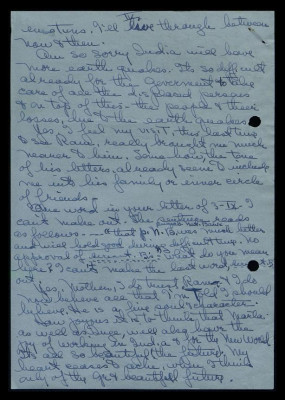 emotions. I'll live through between
now & then.
Am so sorry India will have
more earth quakes. It's so difficult
already for the Government to take
care of all the displaced persons
& on top of these - the people & their
losses, due to the earth quakes.
Yes, I feel my visit, this last time
to see Rana, really brought me much
nearer to him. Somehow, the tone
of his letters, already seem to include
me into his family or inner circle
of friends.
Some word in your letter of I
can't make out. The sentence reads
as follows - that P. N. Powers much better
and will hold good during difficult times. no
approval of What do you mean
here? I can't make the last word,
out
Yes, Mother, I do trust Rana - I do
now believe all that I'm told I should
believe. He is a fine soul & character.
Am happy too to think that Marla
as well as Lance, will also have the
joy of working in India & for the New World
It's all so beautiful the future. My
heart ceases to ache, when I think
only of the gr & beautiful future.